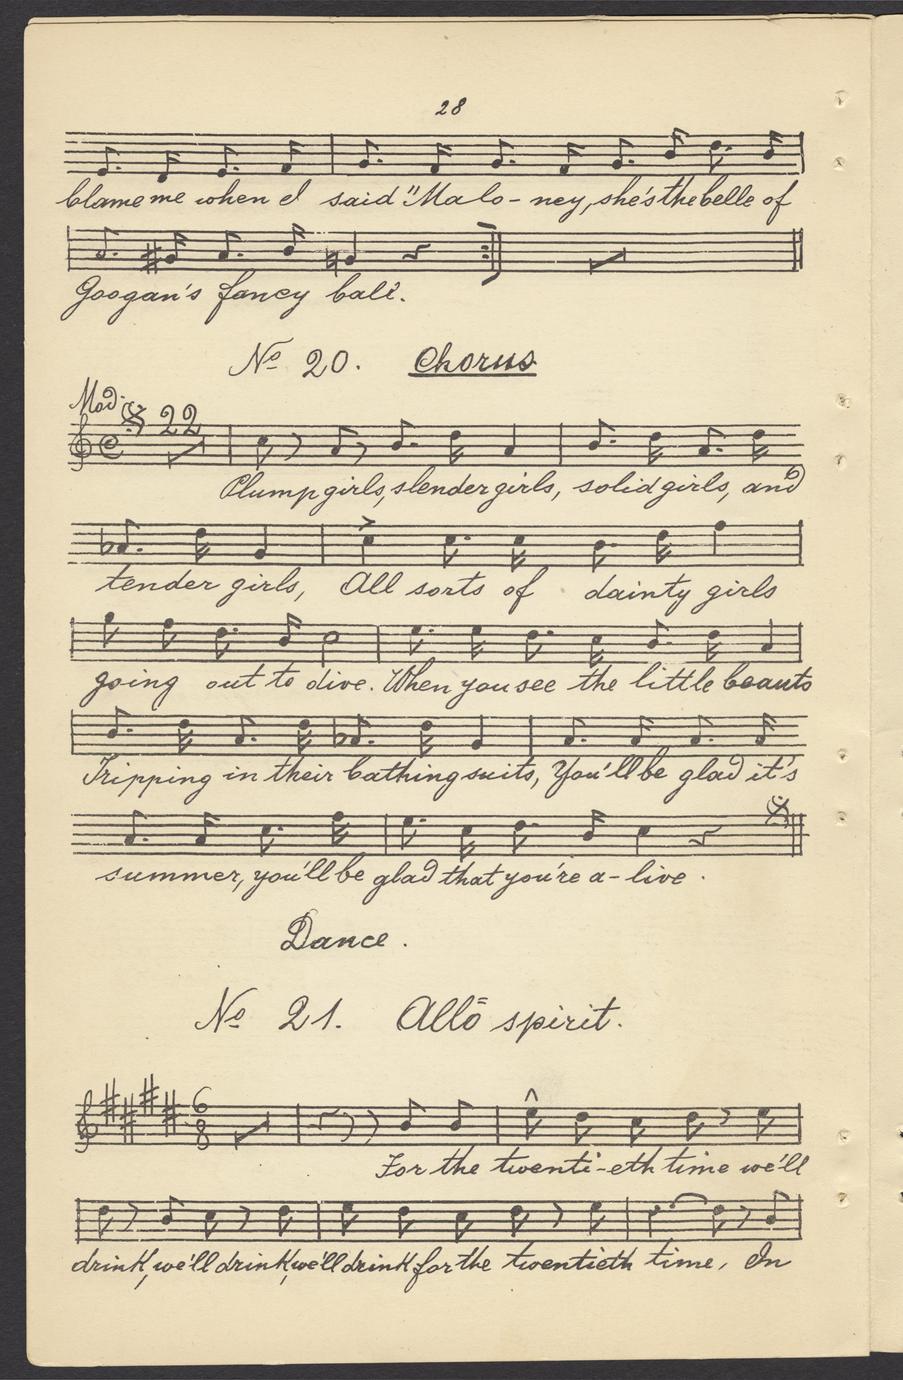 28
blame me when I said "Malo-ney, she's the belle of
Googan's fancy ball.
No 20. Chorus
Mod.
22
Plump girls, slender girls, solid girls, and
tender girls, All sorts of dainty girls
going out to dive. When you see the little beauts
Tripping in their bathing suits, You'll be glad it's
summer, you'll be glad that you're a-live.
Dance.
No 21. Allo spirit.
6
8
For the twenti-eth time we'll
drink, we'll drink, we'll drink for the twentieth time, In